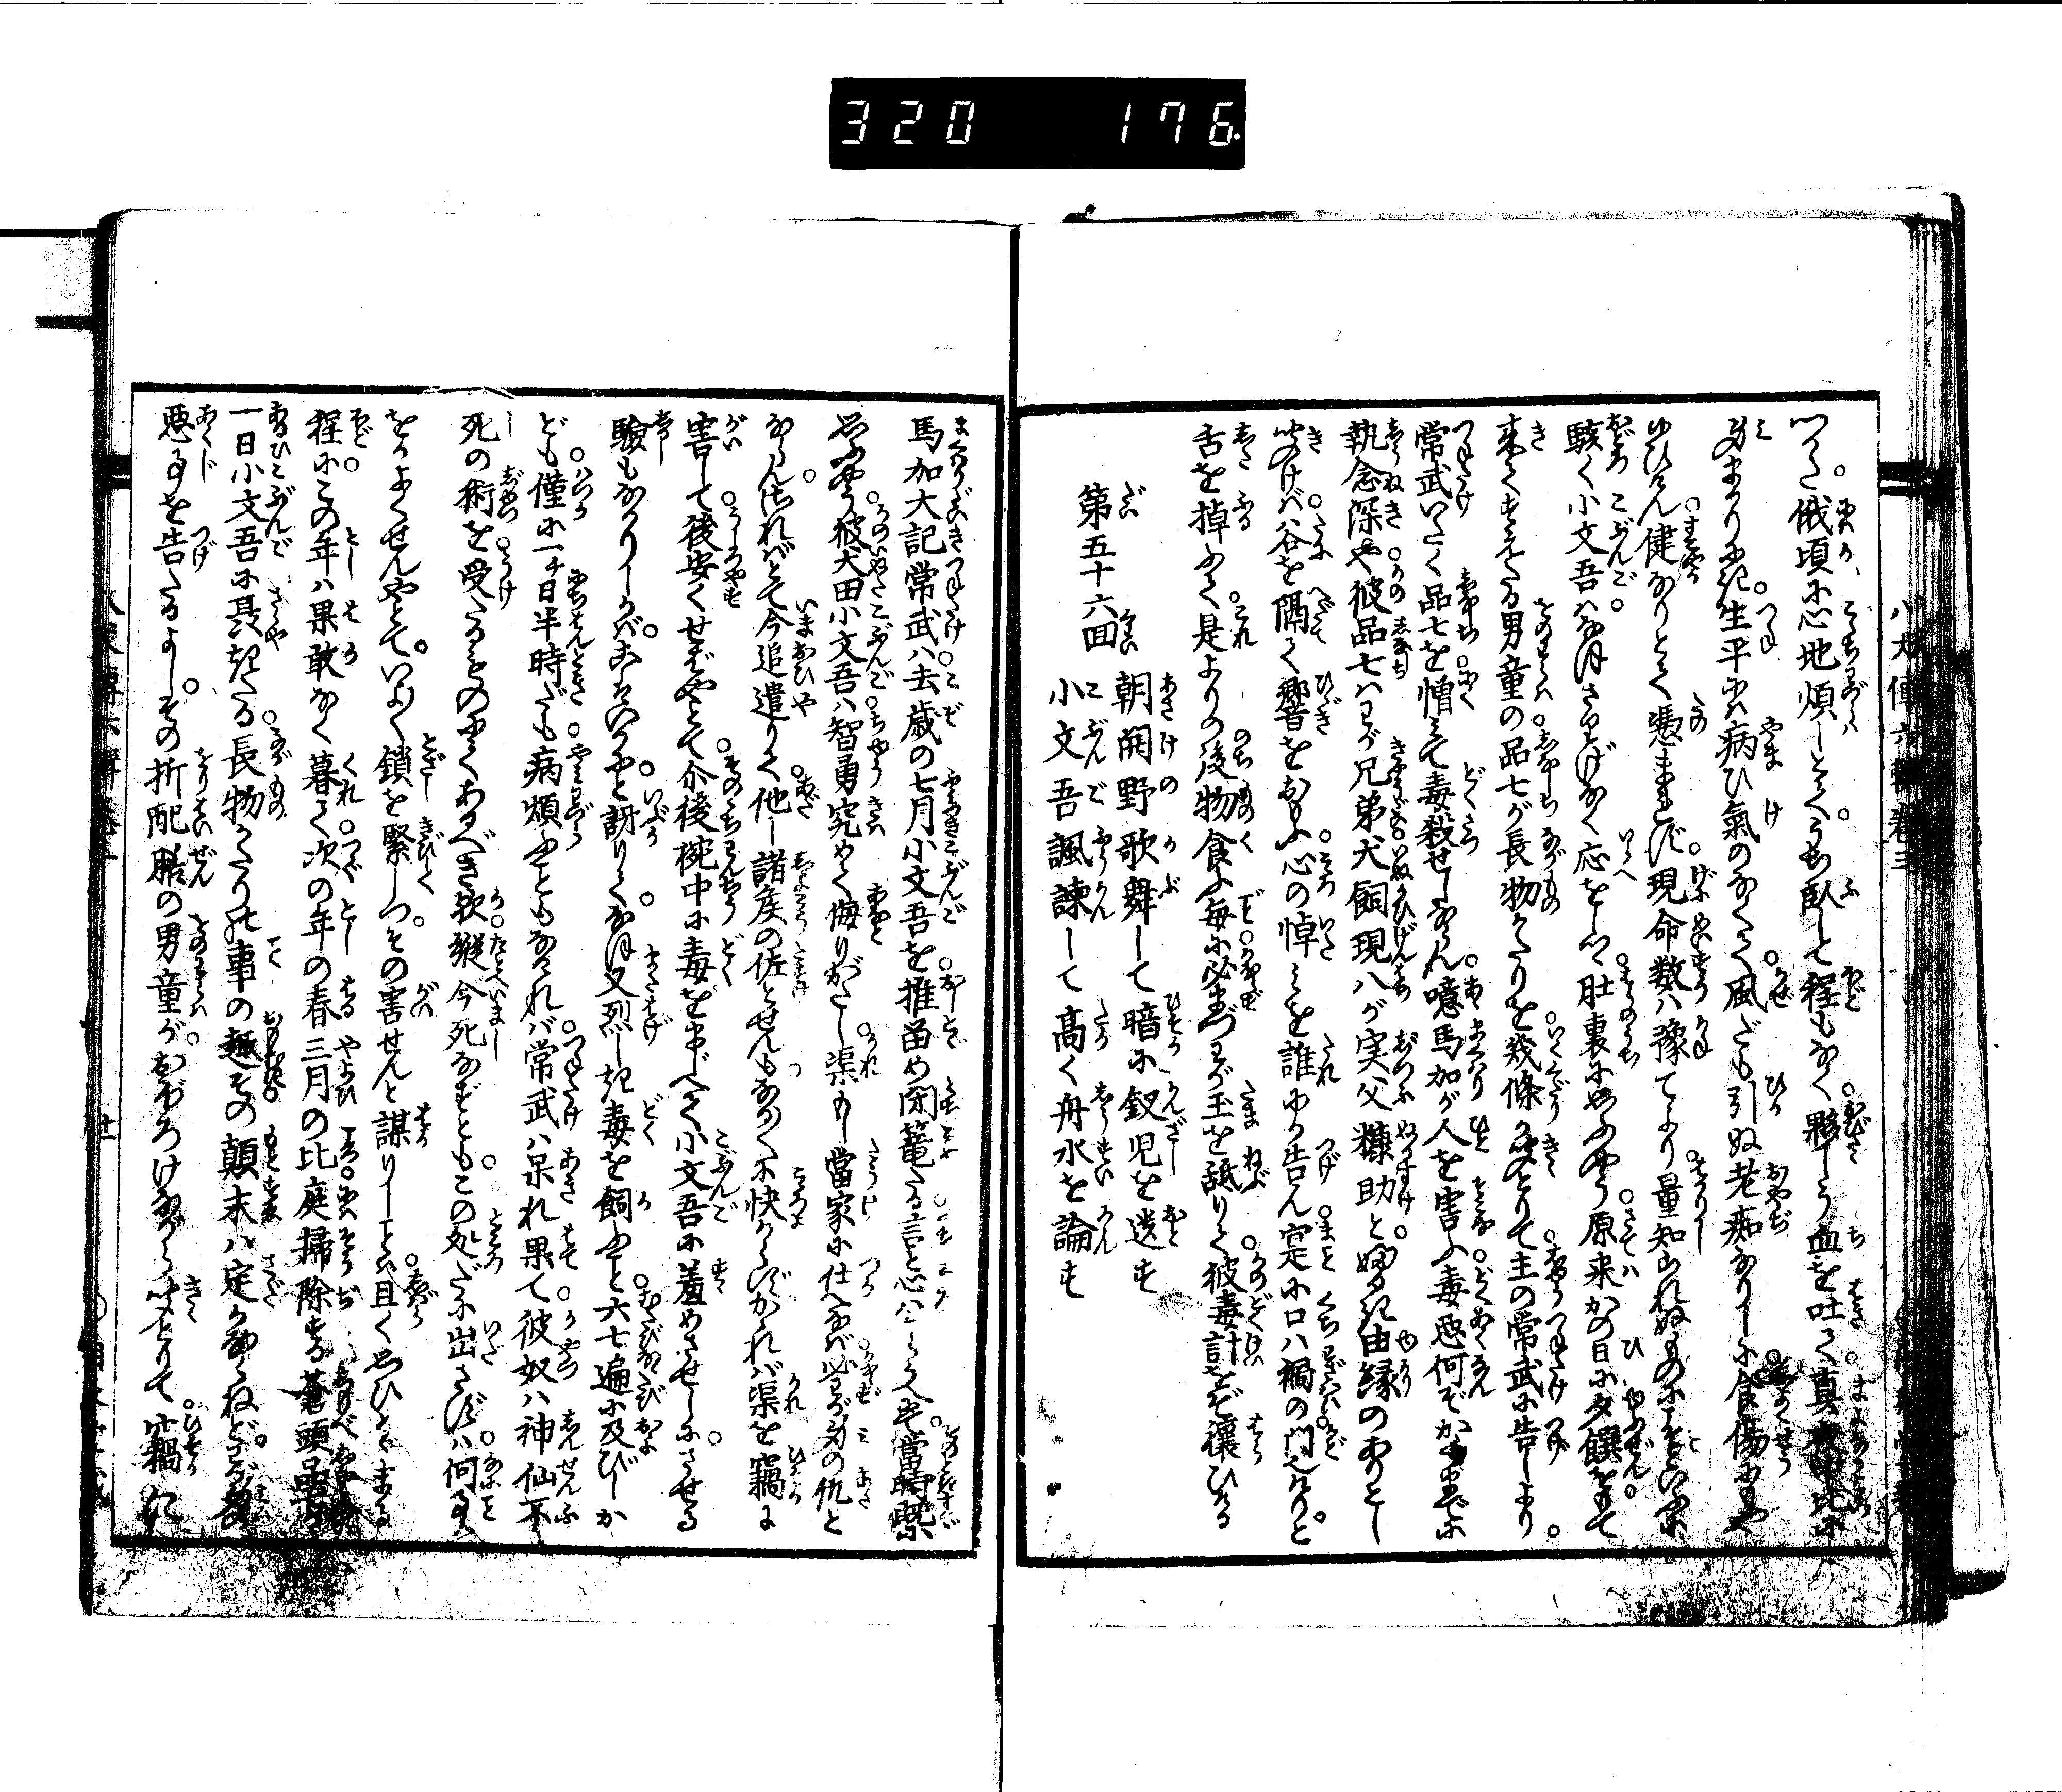 320 176.
つゝ。俄頃に心地煩しとて。うち臥して程もなく。夥しう血を吐て。
身まかりにき。生平には病ひ氣のなくて。風だも引ぬ老痴なりしに。食傷にもや
ゆひけん。健なりとて憑まれず。現命数は豫てより。量知られぬものにこそといふに
駭く小文吾は。なほさりげなく応をしつ。肚裏に思ふやう。原来かの日に夕饌をもて
来てすえたる男童の。品七が長物がたりを。幾條か聞とりて。主の常武に告しより。
常武いたく品七を。憎みて毒殺せしならん。噫馬加が人を害ふ。毒悪何ぞかくまでに
執念深や。彼品七はわが兄弟。犬飼現八が実父。糠助と好みある由縁のありとし
聞けば。谷を隔て響をおもふ。心の悼みを誰にか告ん。寔に口は禍の門なりと。
舌を掉ふて是よりの後。物食ふ毎に必まづ。わが玉を舐りて。彼毒計をぞ禳ひける
第五十六回 朝開野歌舞して暗に釵児を遺す
小文吾諷諌して高く舟水を論ず
馬加大記常武は。去歳の七月小文吾を。推留め閉篭たる。當時既に
思ふやう。彼犬田小文吾は。智勇究めて侮りがたし。渠もし當家に仕へなば。必わが身の仇と
ならん。さればとて今追遣りて。他し諸侯の佐とせんも。なか〳〵に快からず。かれば渠を竊に
害して。後安くせばやとて。尒後椀中に毒をまじへて。小文吾に羞めさせしに。させる
驗もなかりしかば。こはいかにと訝りて。なほ又烈しき毒を飼ふこと。六七遍に及びしか
ども。僅に一チ日半時だも。病煩ふこともなければ。常武は呆れ果て。彼奴は神仙不
死の術を。受たるものにてあるべき歟。縦今死なずとも。この処だに出さずは。何事
をかよくせんやとて。いよ〳〵鎖を緊しつ。その害せんと謀りしことは。且く思ひとゞまる
程に。この年は果敢なく暮て。次の年の春三月の比。庭掃除する蒼頭品七
一日小文吾に具したる。長物がたりの事の趣。その顛末は定かならねど。
悪事を告たるよし。その折配膳の男童が。おぼろけながら聞とりて。竊に